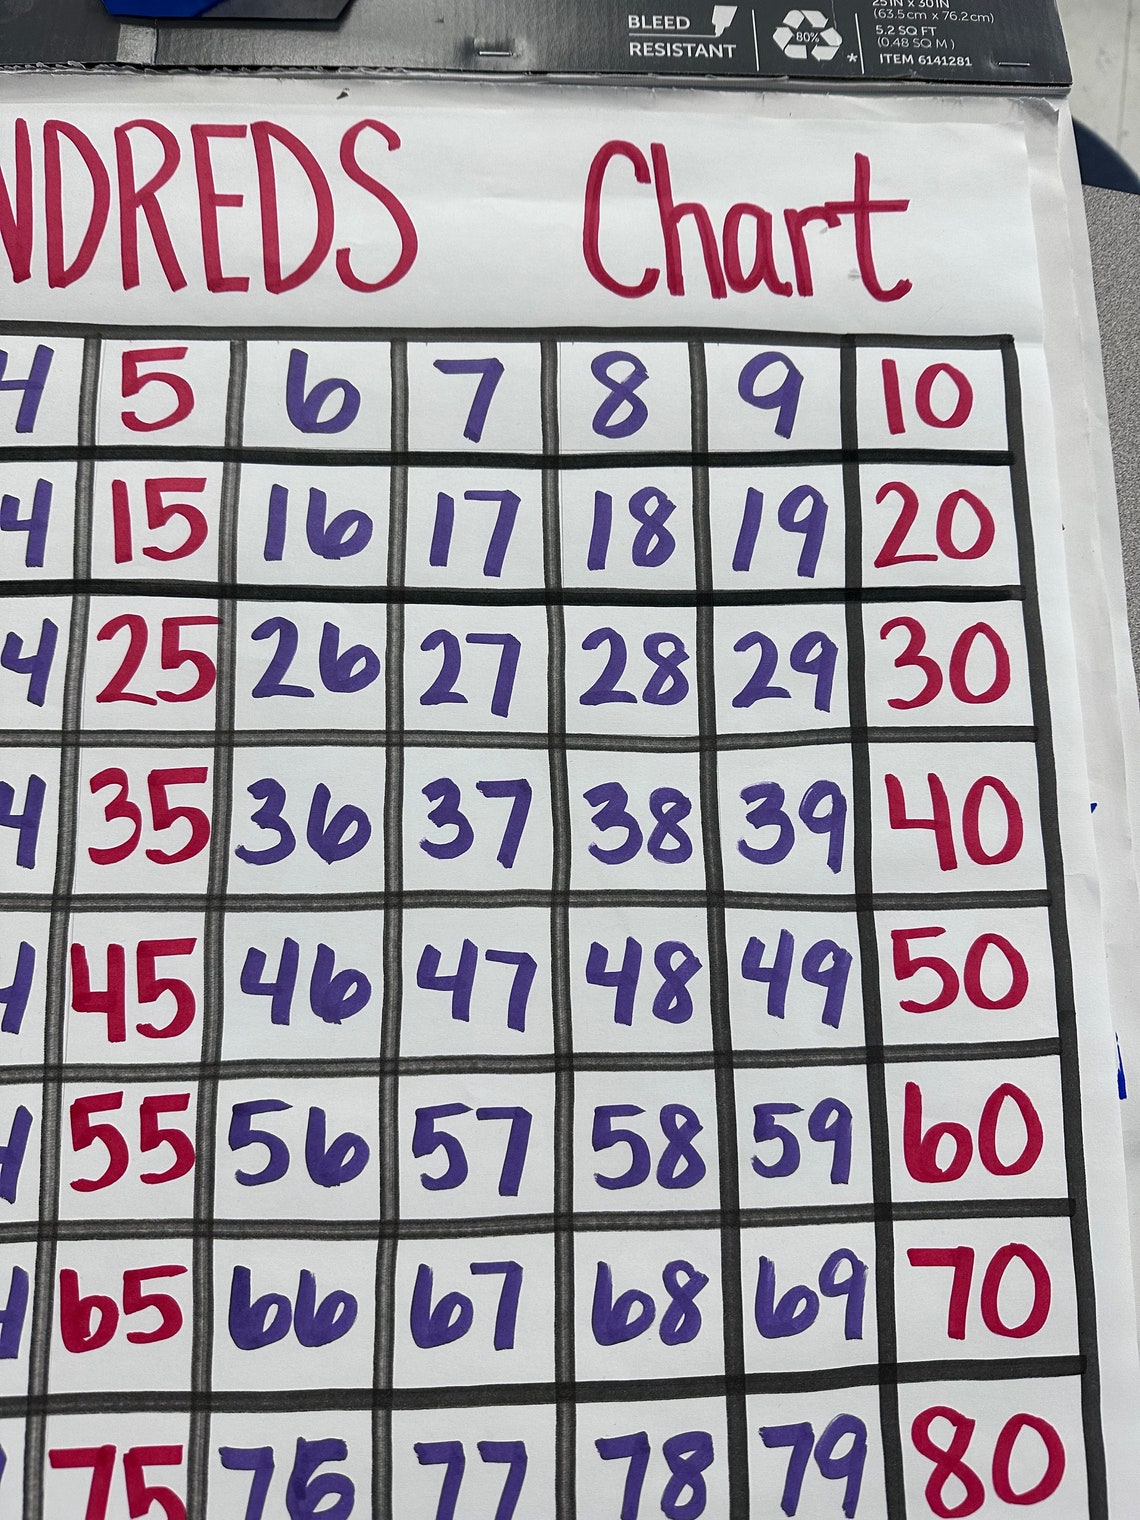 BLEED
RESISTANT
80%
*
25 IN x 30 IN
(63.5 cm x 76.2 cm)
5.2 SQ FT
(0.48 SQ M)
ITEM 6141281
NDREDS Chart
4 5 6 7 8 9 10
4 15 16 17 18 19 20
4 25 26 27 28 29 30
4 35 36 37 38 39 40
4 45 46 47 48 49 50
4 55 56 57 58 59 60
4 65 66 67 68 69 70
75 76 77 78 79 80